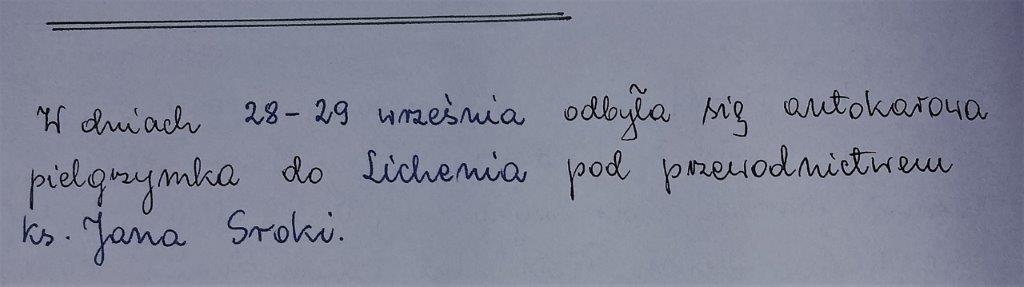 W dniach 28-29 września odbyła się autokarowa
pielgrzymka do Lichenia pod przewodnictwem
ks. Jana Sroki.